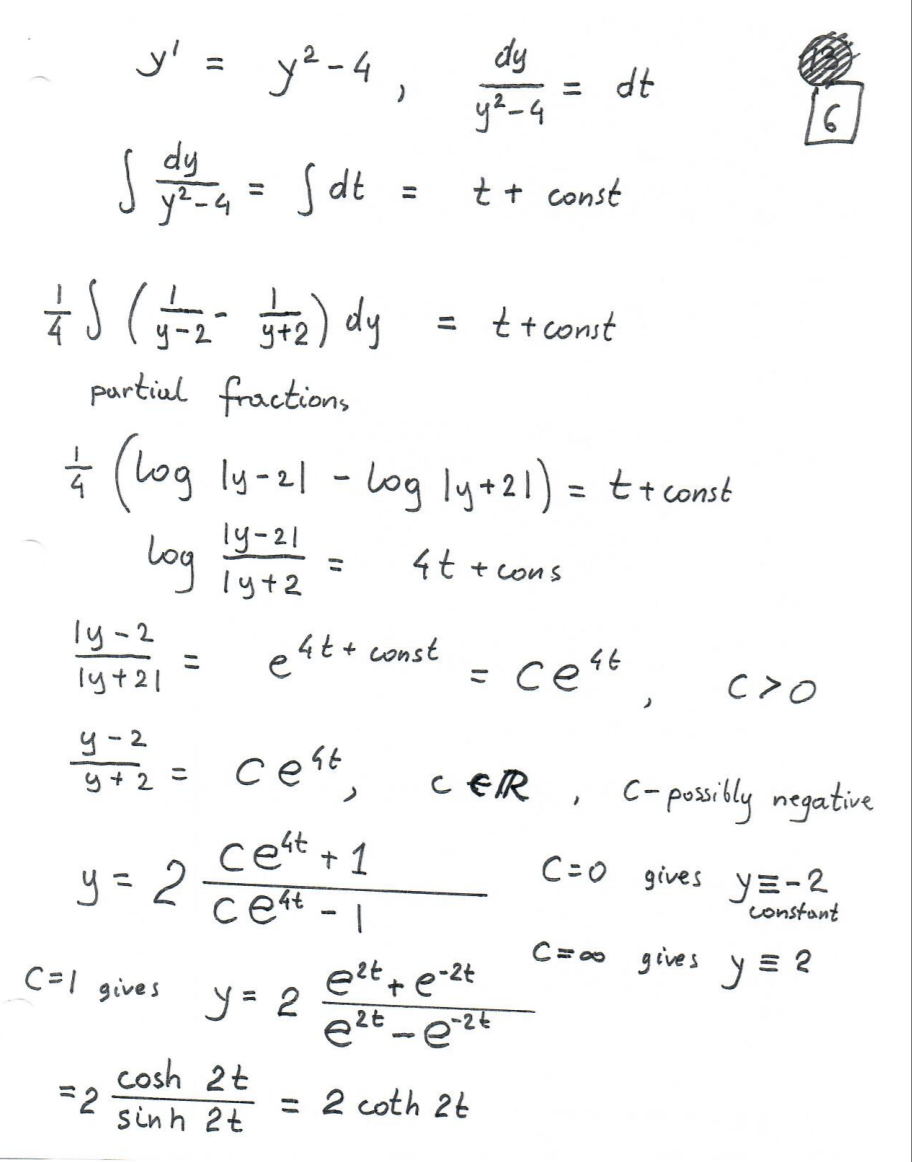 y' = y² - 4 , dy/(y²-4) = dt
6
∫ dy/(y²-4) = ∫ dt = t + const
1/4 ∫ ( 1/(y-2) - 1/(y+2) ) dy = t + const
partial fractions
1/4 ( log |y-2| - log |y+2| ) = t + const
log |y-2|/|y+2 = 4t + cons
|y-2/|y+2| = e^(4t + const) = Ce^(4t) , C>0
(y-2)/(y+2) = Ce^(4t), C ∈ ℝ , C-possibly negative
y = 2 (Ce^(4t) + 1)/(Ce^(4t) - 1) C=0 gives y≡-2
constant
C=∞ gives y ≡ 2
C=1 gives y = 2 (e^(2t) + e^(-2t))/(e^(2t) - e^(-2t))
=2 cosh 2t/sinh 2t = 2 coth 2t